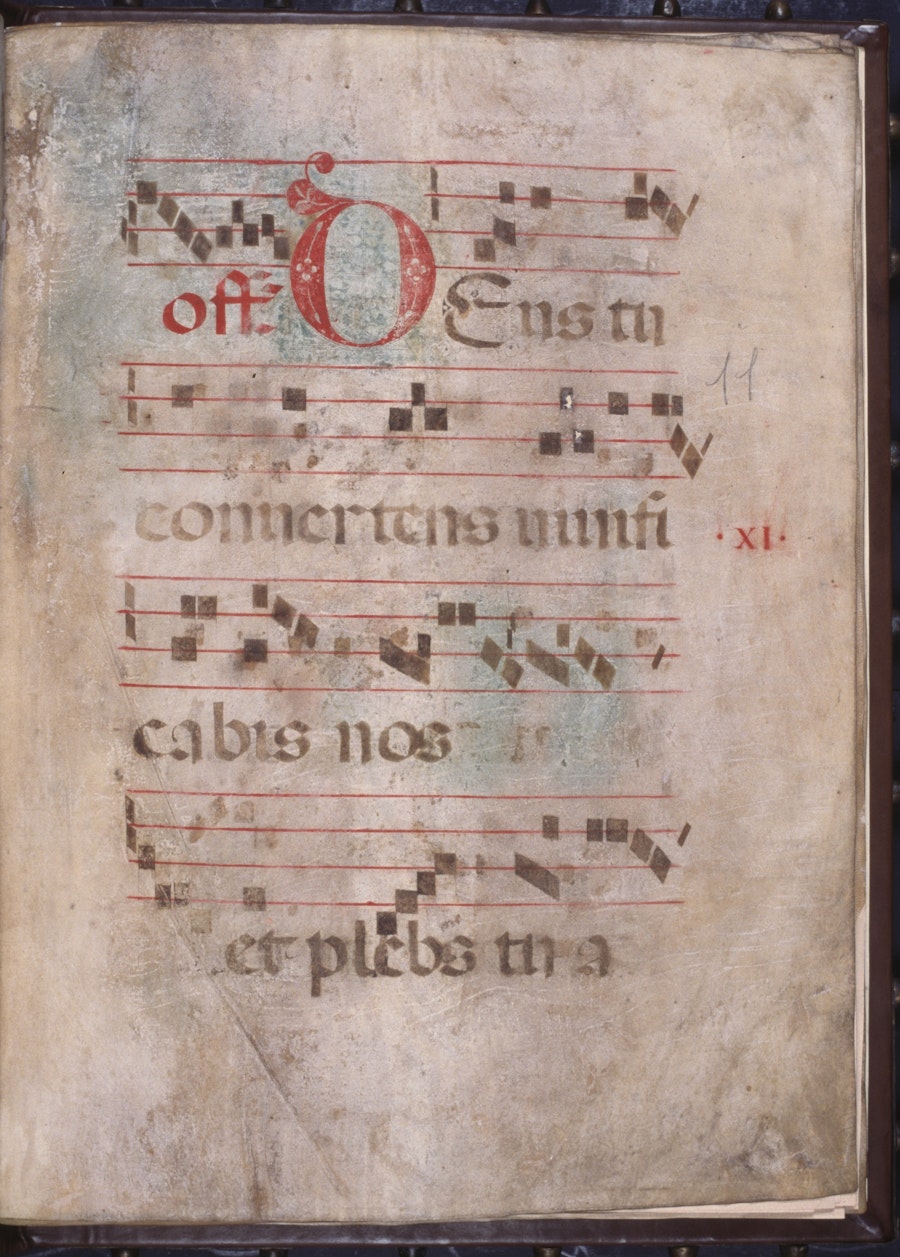 off. DEus tu
11
conuertens uiuifi
·XI·
cabis nos
et plebs tua